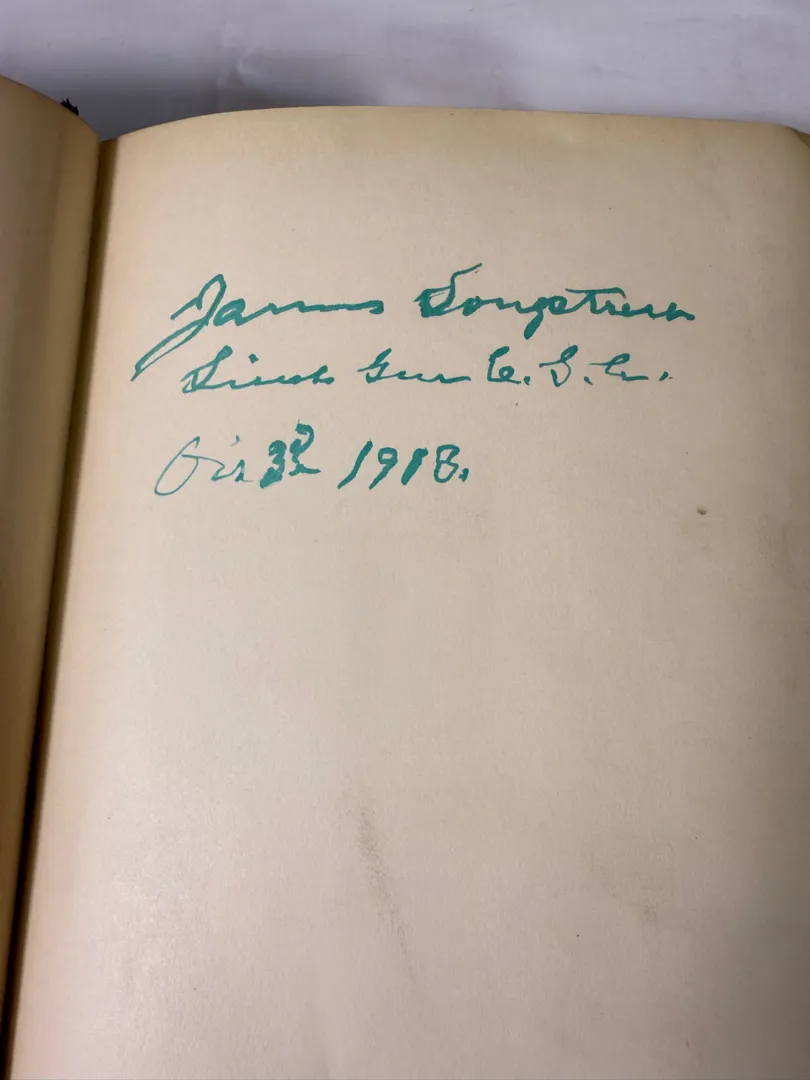 James Longstreet
Lieut Gen C. S. A.
22 1918.